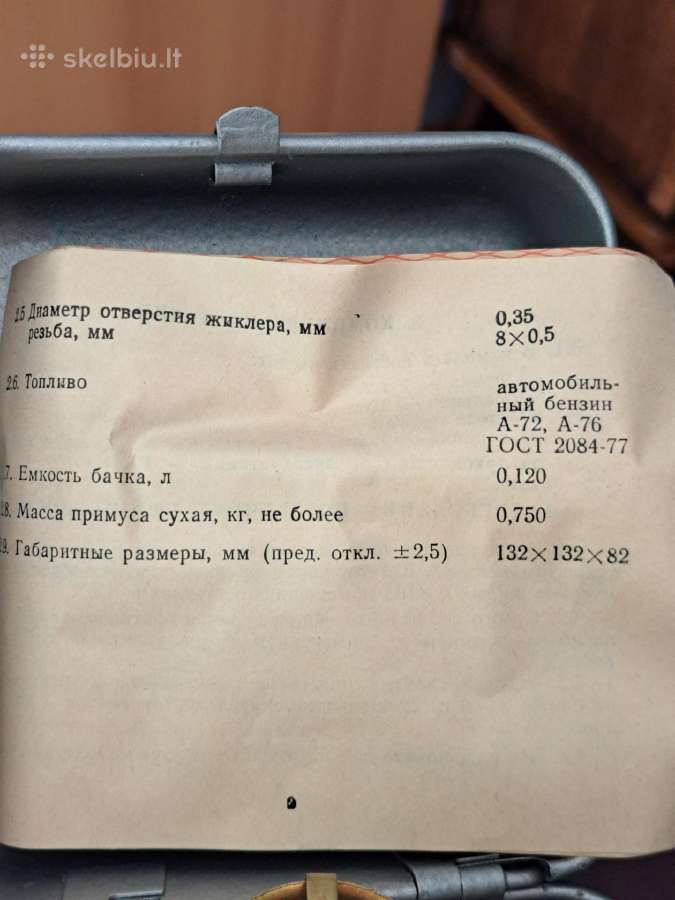 skelbiu.lt
2.5 Диаметр отверстия жиклера, мм 0,35
резьба, мм 8×0,5
2.6. Топливо автомобиль-
ный бензин
А-72, А-76
ГОСТ 2084-77
7. Емкость бачка, л 0,120
8. Масса примуса сухая, кг, не более 0,750
9. Габаритные размеры, мм (пред. откл. ±2,5) 132×132×82